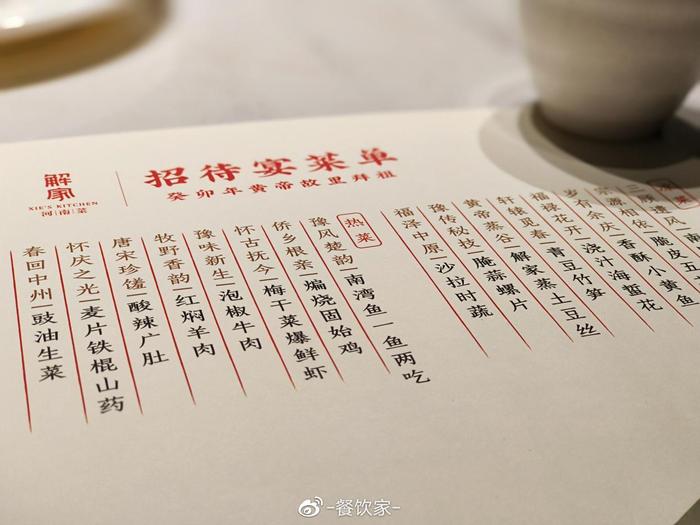 解家
XIE'S KITCHEN
河南菜
招待宴菜单
癸卯年黄帝故里拜祖
脆皮五
岁有余庆 香酥小黄鱼
福禄花开 浇汁海蜇花
轩辕觅春 青豆竹笋
黄帝蒸谷 解家蒸土豆丝
豫传秘技 腌蒜螺片
福泽中原 沙拉时蔬
热菜
豫风楚韵 南湾鱼一鱼两吃
侨乡根亲 煸烧固始鸡
怀古抚今 梅干菜爆鲜虾
豫味新生 泡椒牛肉
牧野香韵 红焖羊肉
唐宋珍馐 酸辣广肚
怀庆之光 麦片铁棍山药
春回中州 豉油生菜
-餐饮家-